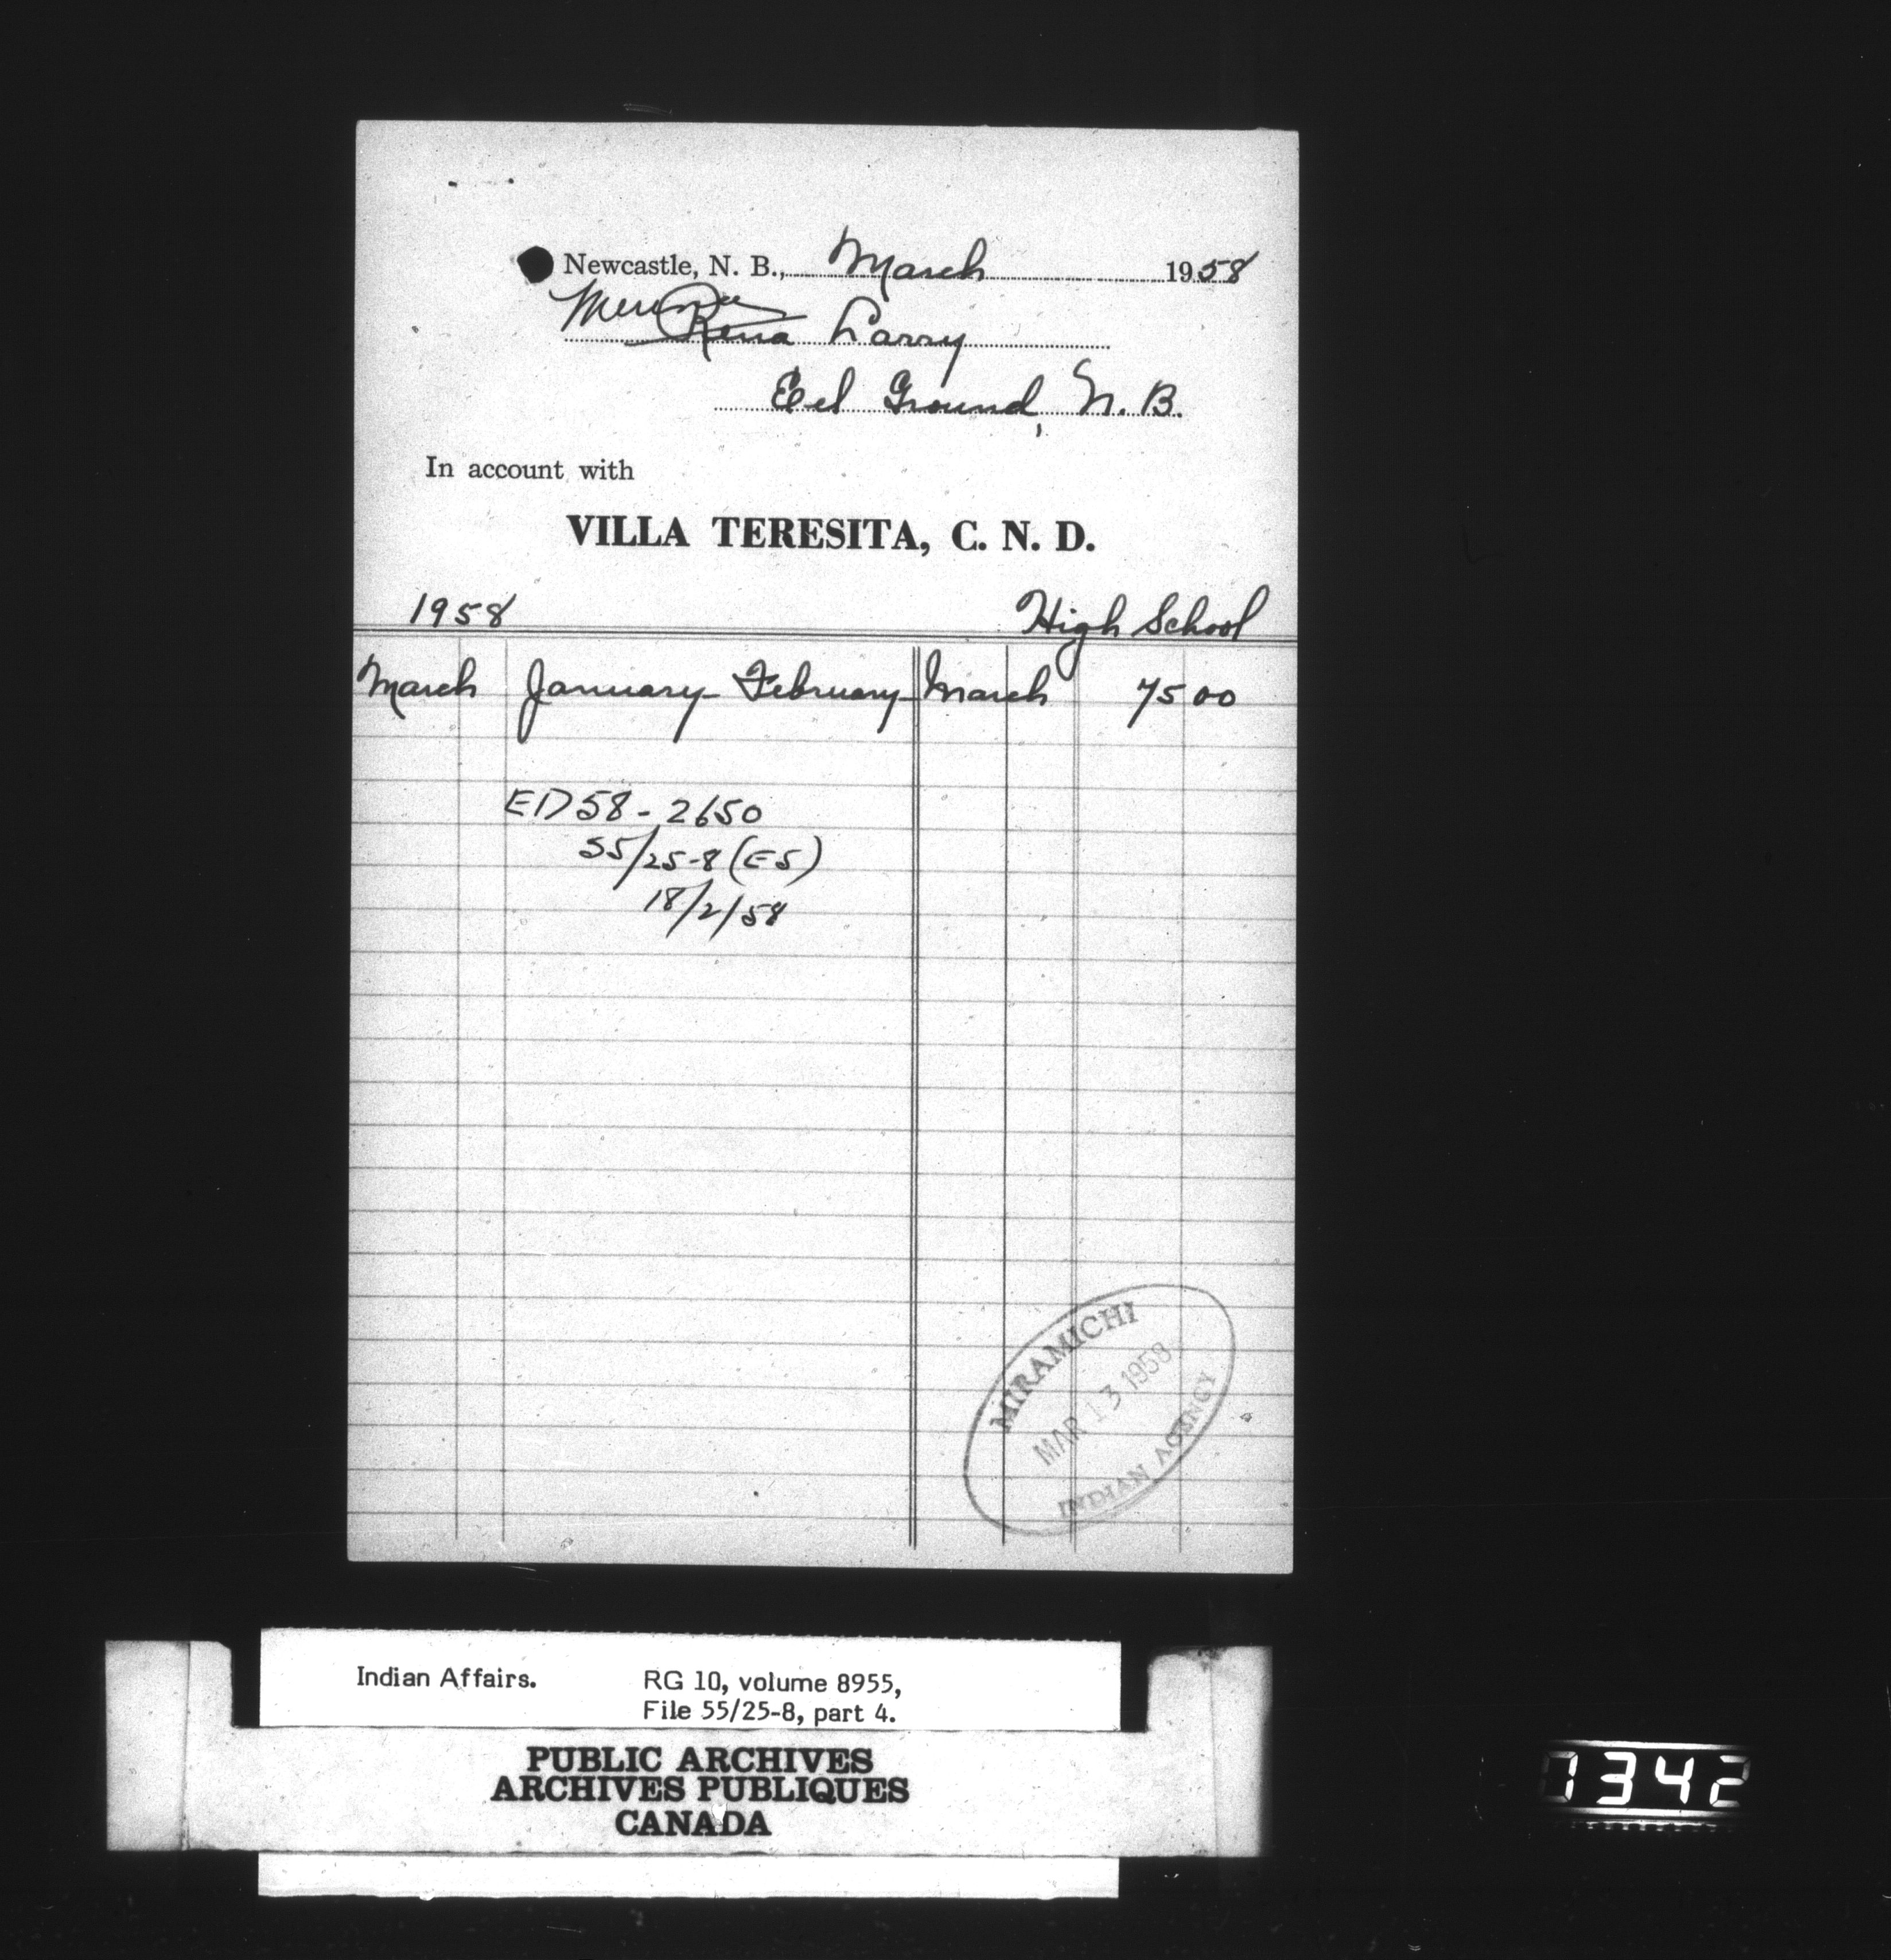 Newcastle, N. B., March 1958
Rena Larry
Eel Ground, N. B.
In account with
VILLA TERESITA, C. N. D.
1958 High School
March January - February - March 75 00
ED 58 - 2650
55/25-8 (ES)
18/2/58
MIRAMICHI
MAR 13 1958
INDIAN AGENCY
Indian Affairs. RG 10, volume 8955,
File 55/25-8, part 4.
PUBLIC ARCHIVES
ARCHIVES PUBLIQUES
CANADA
1342